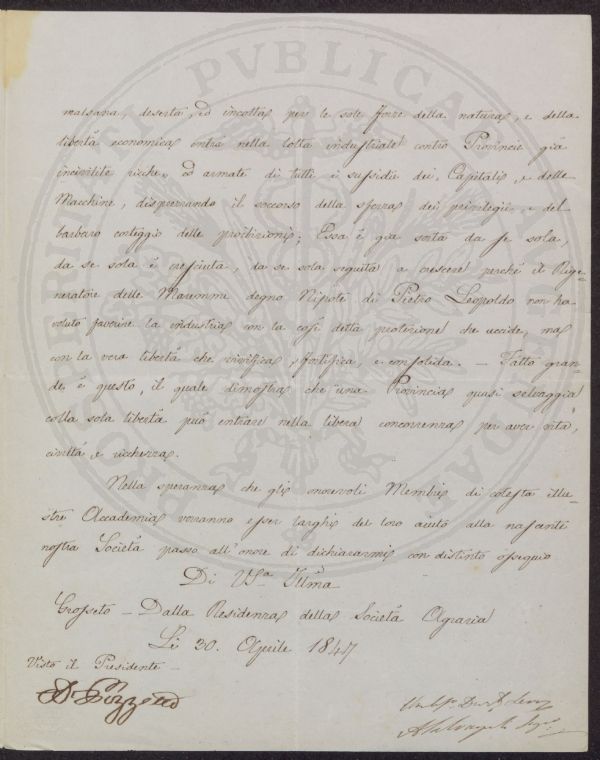 malsana, deserta, ed incolta per le sole forze della natura, e della
libertà economica entra nella lotta industriale contro Provincie già
incivilite ricche, ed armate di tutti i sussidii dei Capitali, e delle
Macchine, disprezzando il soccorso della sferza dei privilegii, e del
barbaro corteggio delle proibizioni; Essa è già sorta da se sola,
da se sola è cresciuta, da se sola seguita a crescere perché il Rige-
neratore delle Maremme degno Nipote di Pietro Leopoldo non ha
voluto favorire la industria con la così detta protezione che uccide, ma
con la vera libertà che vivifica, fortifica, e consolida. — Fatto gran-
de, è questo, il quale dimostra che una Provincia quasi selvaggia
colla sola libertà può entrare nella libera concorrenza per aver vita,
civiltà, e ricchezza.
Nella speranza che gli onorevoli Membri di cotesta illu-
stre Accademia vorranno esser larghi del loro aiuto alla nascente
nostra Società passo all'onore di dichiararmi con distinto ossequio
Di VSa Illma
Grosseto — Dalla Residenza della Società Agraria
Li 30. Aprile 1847
Visto il Presidente —
D. Pizzetti
PVBLICAE